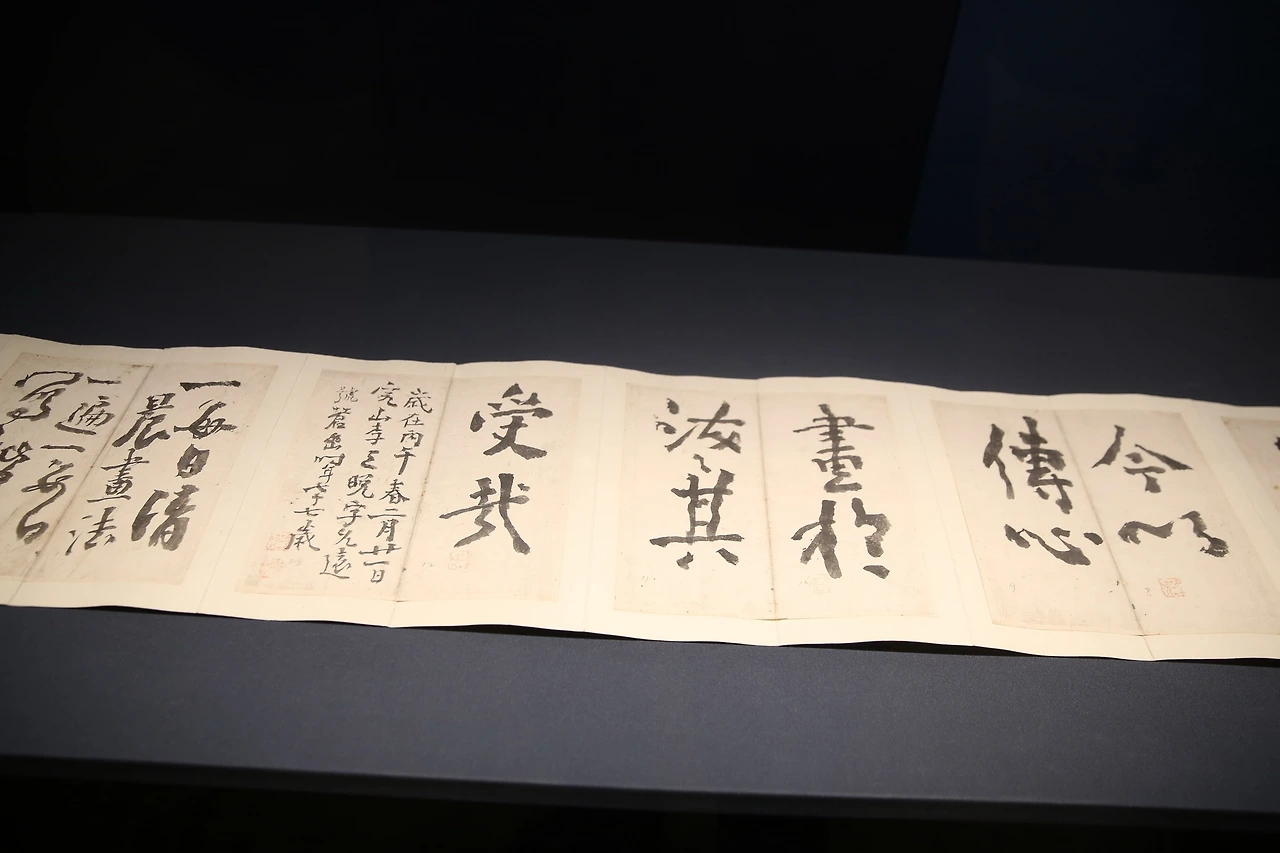 今以
傳心
畫於
汝其
受哉
歲在丙午春二月廿一日
完山李三晩字允遠
號蒼巖時年七十七歲
一每日清
晨畫法
一遍一每日
寫